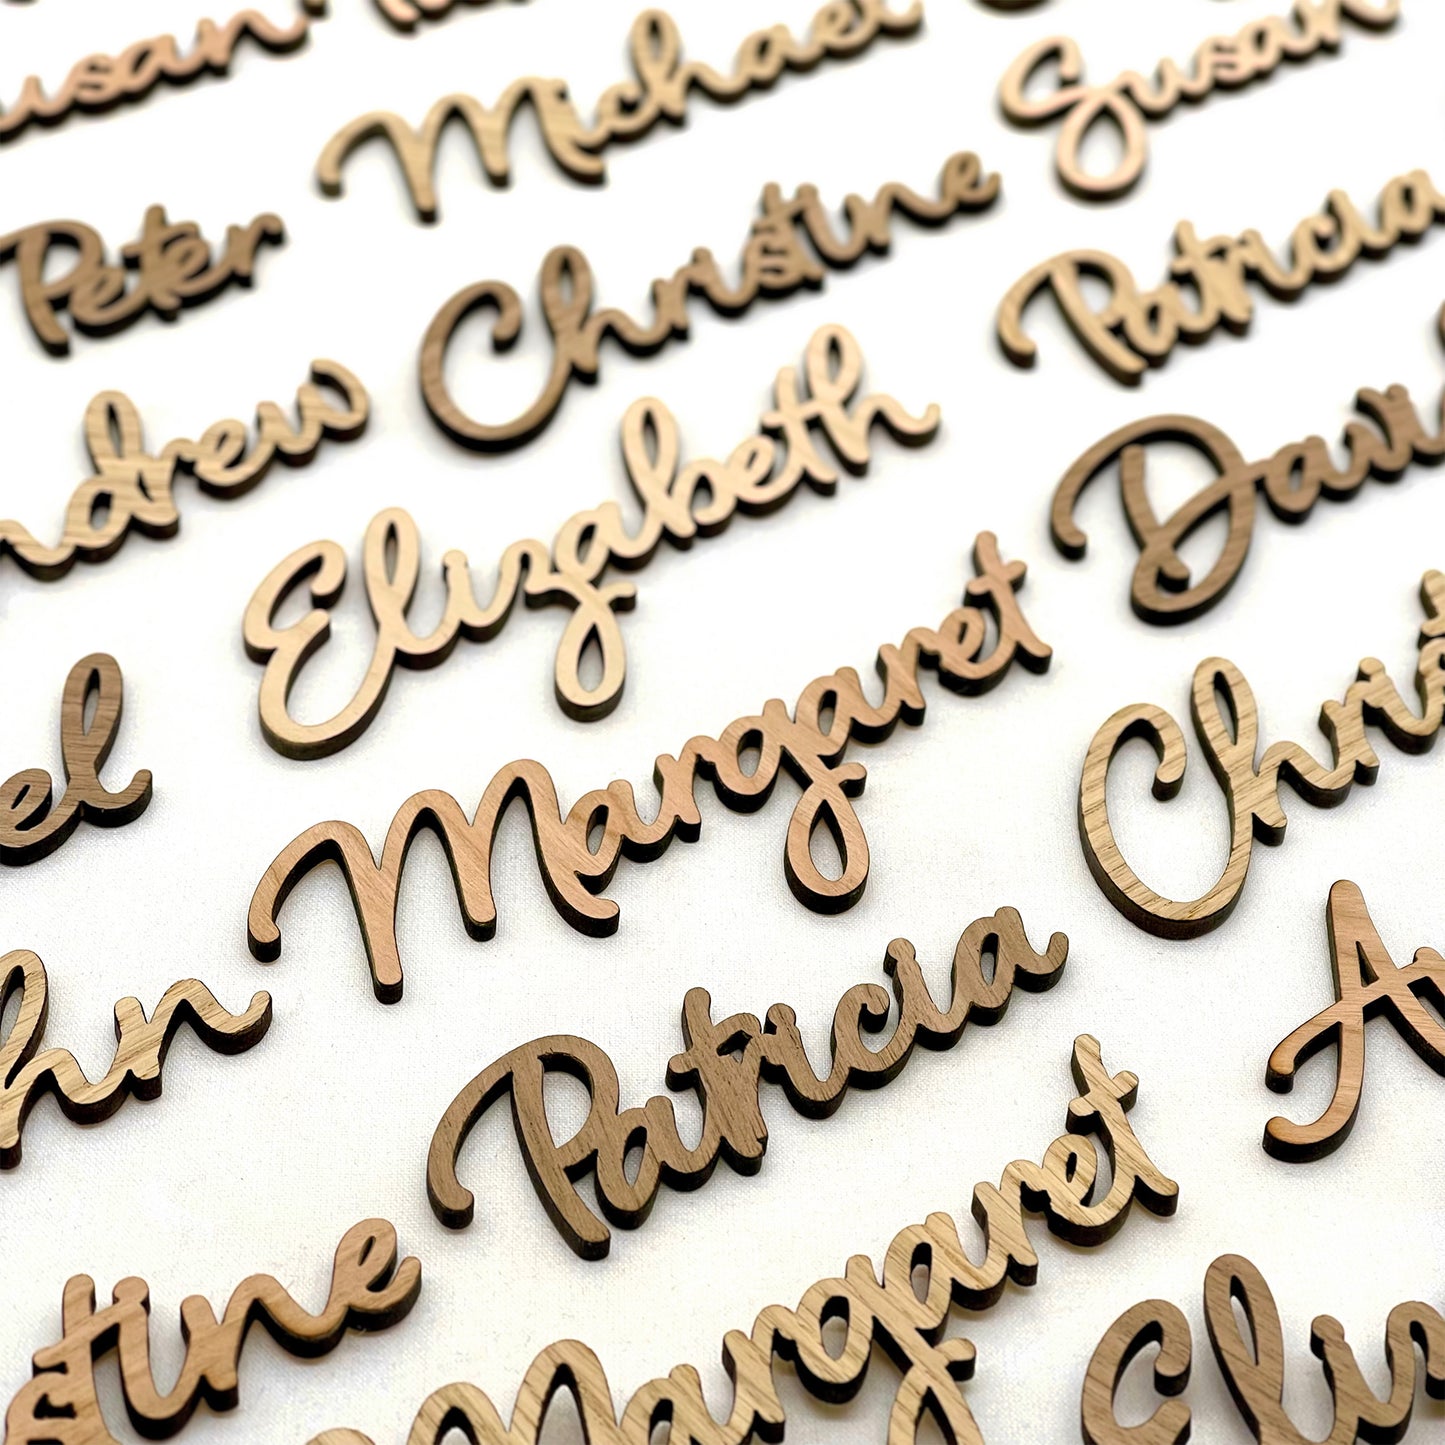 usan
Michael
Susan
Peter
Christine
Patricia
ndrew
Elizabeth
David
el
Margaret
Christ
hn
Patricia
A
stine
Margaret
Eliz